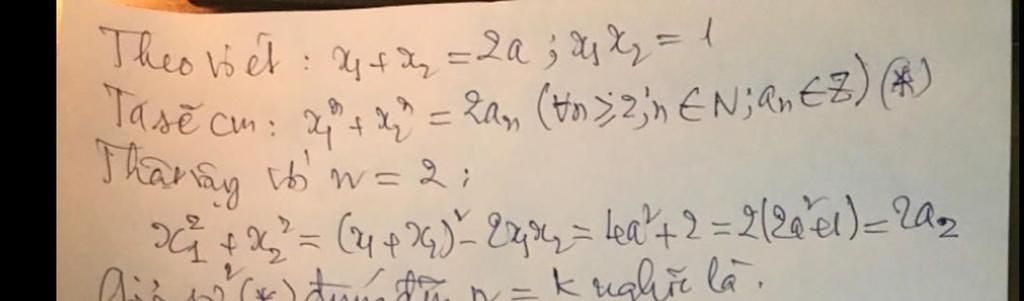 Theo Viét : x₁ + x₂ = 2a ; x₁x₂ = 1
Ta sẽ cm : x₁ⁿ + x₂ⁿ = 2aₙ (∀n ≥ 2; n ∈ N; aₙ ∈ Z) (*)
Thật vậy với n = 2 :
x₁² + x₂² = (x₁ + x₂)² - 2x₁x₂ = 4a² + 2 = 2(2a² + 1) = 2a₂
Giả sử (*) đúng đến n = k nghĩa là.